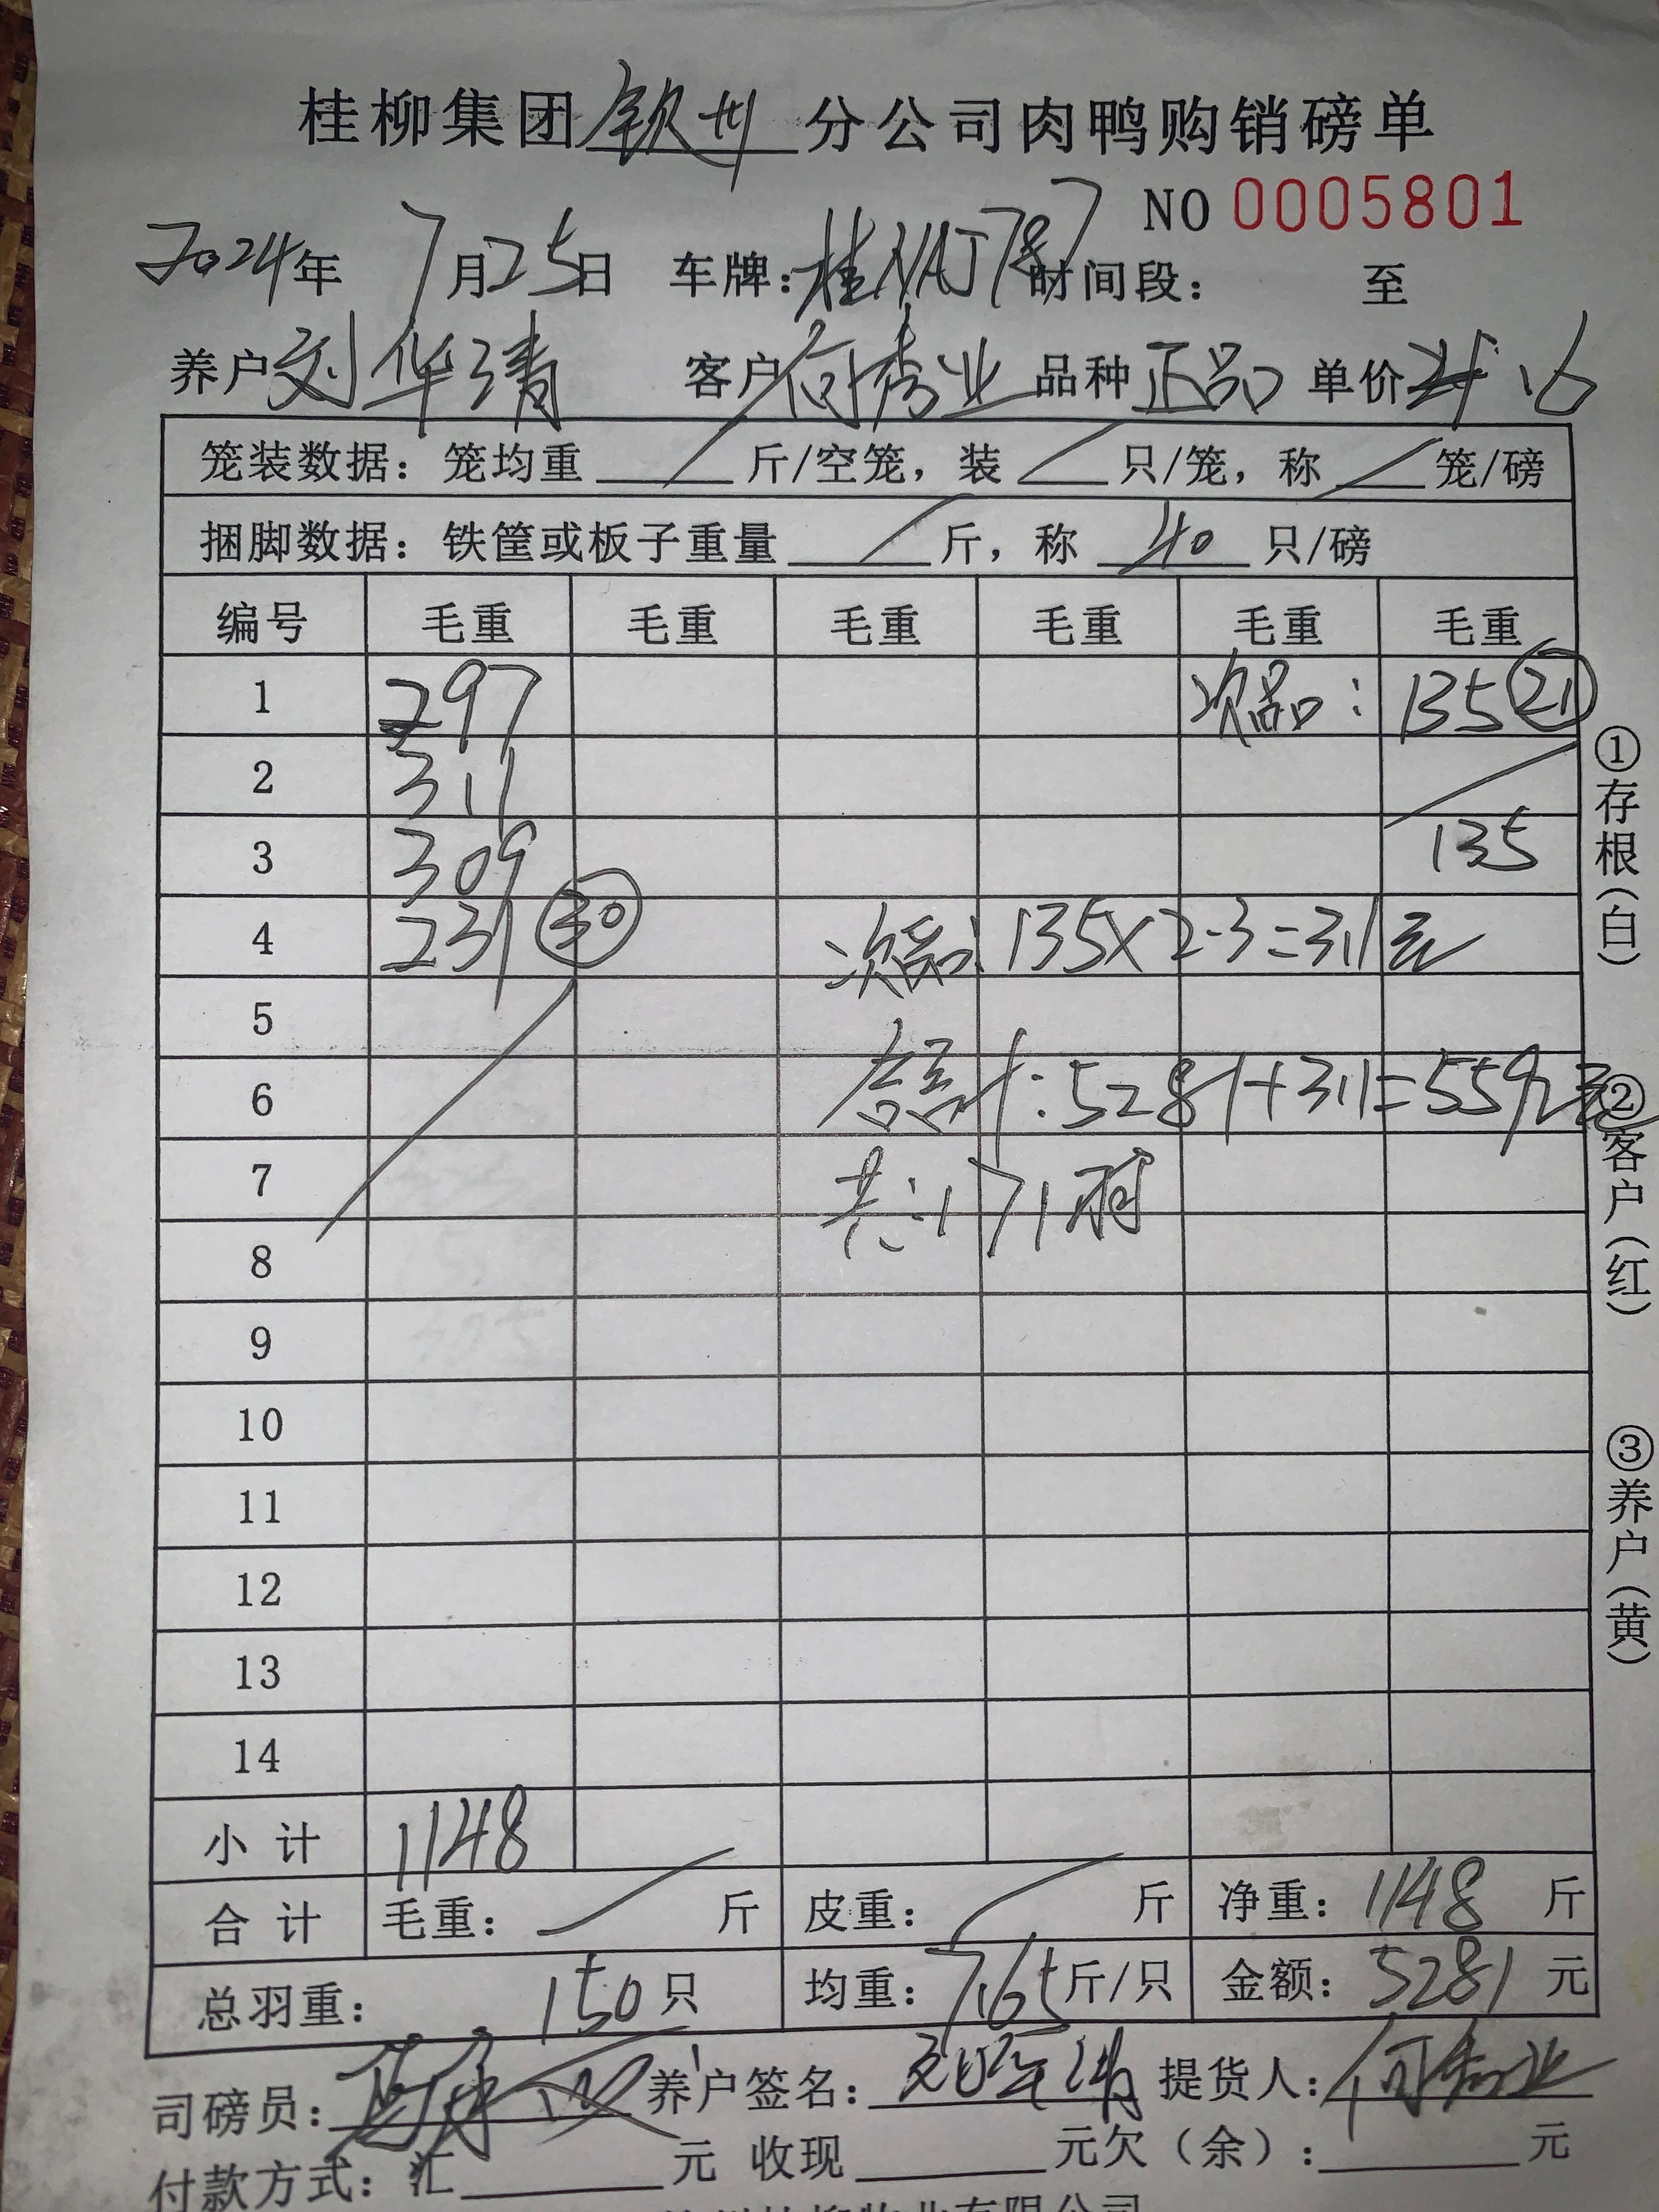 桂柳集团钦州分公司肉鸭购销磅单
NO 0005801
2024年7月25日 车牌:桂NAJ787 时间段: 至
养户刘华清 客户何秀业 品种正品 单价
笼装数据: 笼均重 / 斤/空笼, 装 / 只/笼, 称 / 笼/磅
捆脚数据: 铁筐或板子重量 / 斤, 称 40 只/磅
编号 毛重 毛重 毛重 毛重 毛重 毛重
1 297 次品: 135 21
2 311
3 309 135
4 231 30 次品: 135×2.3=311元
5
6 合计:5281+311=5592元
7 共:171羽
8
9
10
11
12
13
14
小计 1148
合计 毛重: / 斤 皮重: / 斤 净重: 1148 斤
总羽重: 150只 均重: 7.65斤/只 金额: 5281元
司磅员: 养户签名: 刘华清 提货人: 何秀业
付款方式: 汇 元 收现 元欠(余): 元
①存根(白)
②客户(红)
③养户(黄)